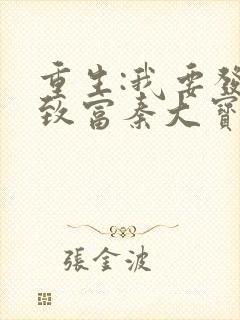 重生:我要發
致富秦大寶
張金波